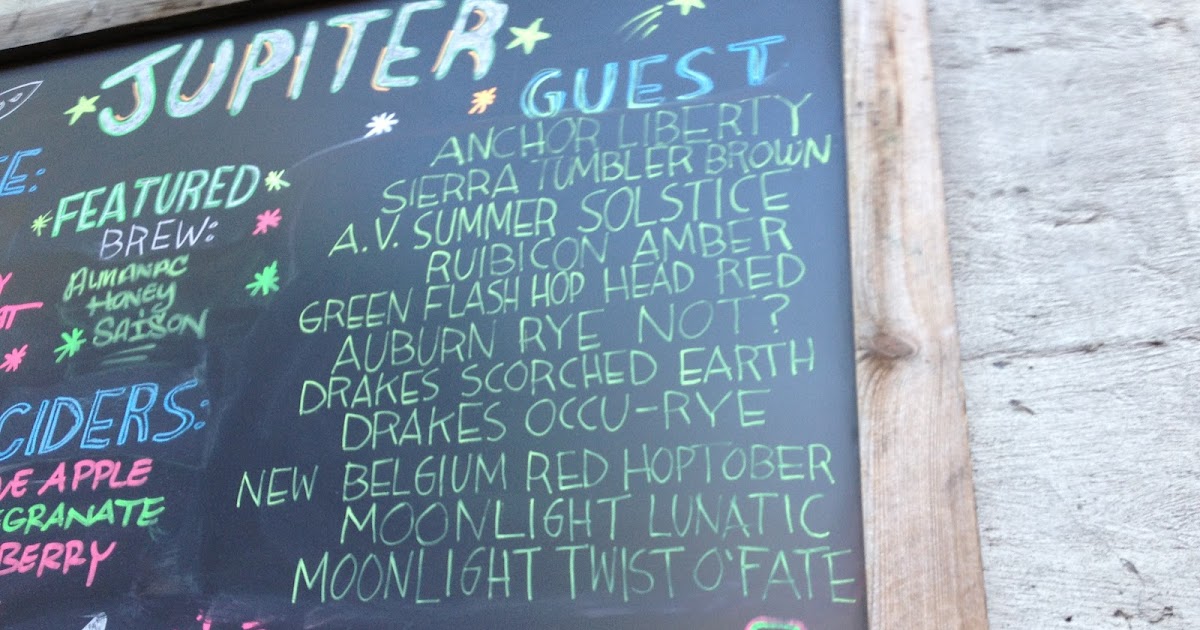 JUPITER
FEATURED
BREW:
ALMANAC
HONEY
SAISON
CIDERS:
APPLE
BERRY
GUEST
ANCHOR LIBERTY
SIERRA TUMBLER BROWN
A.V. SUMMER SOLSTICE
RUIBICON AMBER
GREEN FLASH HOP HEAD RED
AUBURN RYE NOT?
DRAKES SCORCHED EARTH
DRAKES OCCU-RYE
NEW BELGIUM RED HOPTOBER
MOONLIGHT LUNATIC
MOONLIGHT TWIST O'FATE